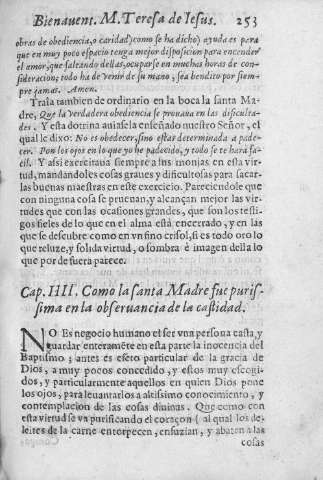 Bienauent. M. Teresa de Iesus. 253
obras de obediencia, o caridad) como se ha dicho) ayuda es para
que en muy poco espacio tenga mejor disposicion para encender
el amor, que saleando dellas, ocuparse en muchas horas de con-
sideracion; todo ha de venir de su mano, sea bendito por siem-
pre jamas. Amen.
Traîa tambien de ordinario en la boca la santa Ma-
dre, Que la verdadera obediencia se prouaua en las dificulta-
des. Y esta dotrina auiasela enseñado nuestro Señor, el
qual le dixo: No es obedecer, sino estar determinada a pade-
cer. Pon los ojos en lo que yo he padecido, y todo se te hara fa-
cil. Y assi exercitaua siempre a sus monjas en esta vir-
tud, mandandoles cosas graues y dificultosas para sacar-
las buenas maestras en este exercicio. Pareciendole que
con ninguna cosa se prueuan, y alcançan mejor las vir-
tudes que con las ocasiones grandes, que son los testi-
gos fieles de lo que en el alma està encerrado, y en las
que se descubre como en vn fino crisol, si es todo oro lo
que reluze, y solida virtud, o sombra è imagen della lo
que por defuera parece.
Cap. IIII. Como la santa Madre fue puris-
sima en la obseruancia de la castidad.
NO Es negocio humano el ser vna persona casta, y
guardar enteramẽte en esta parte la inocencia del
Baptismo; antes es efeto particular de la gracia de
Dios, a muy pocos concedido, y estos muy escogi-
dos, y particularmente aquellos en quien Dios pone
los ojos, para leuantarlos a altissimo conocimiento, y
contemplacion de las cosas diuinas. Que como con
esta virtud se va purificando el coraçon (al qual los de-
leites de la carne entorpecen, ensuzian, y abaten a las
cosas